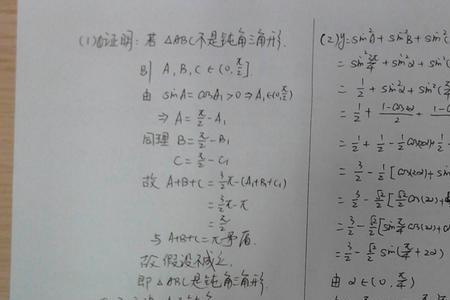 (1)证明: 若 △ABC不是钝角三角形.
则 A, B, C ∈ (0, π/2].
由 sinA = cosA₁ > 0 ⇒ A₁∈(0, π/2)
⇒ A = π/2 - A₁
同理 B = π/2 - B₁
C = π/2 - C₁
故 A+B+C = 3/2π - (A₁+B₁+C₁)
= 3/2π - π
= π/2
与 A+B+C = π 矛盾.
故 假设不成立.
即 △ABC是钝角三角形.
(2) y = sin²A + sin²B + sin²C
= sin²π/4 + sin²α + sin²
= 1/2 + sin²α + sin²(
= 1/2 + 1-cos2α/2 + 1-
= 1/2 + 1/2 - 1/2cos2α + 1/2
= 3/2 - 1/2[cos2α + sin
= 3/2 - √2/2[√2/2cos2α +
= 3/2 - √2/2[sinπ/4cos2α +
= 3/2 - √2/2 sin(π/4 + 2α)
由 α ∈ (0, π/4)